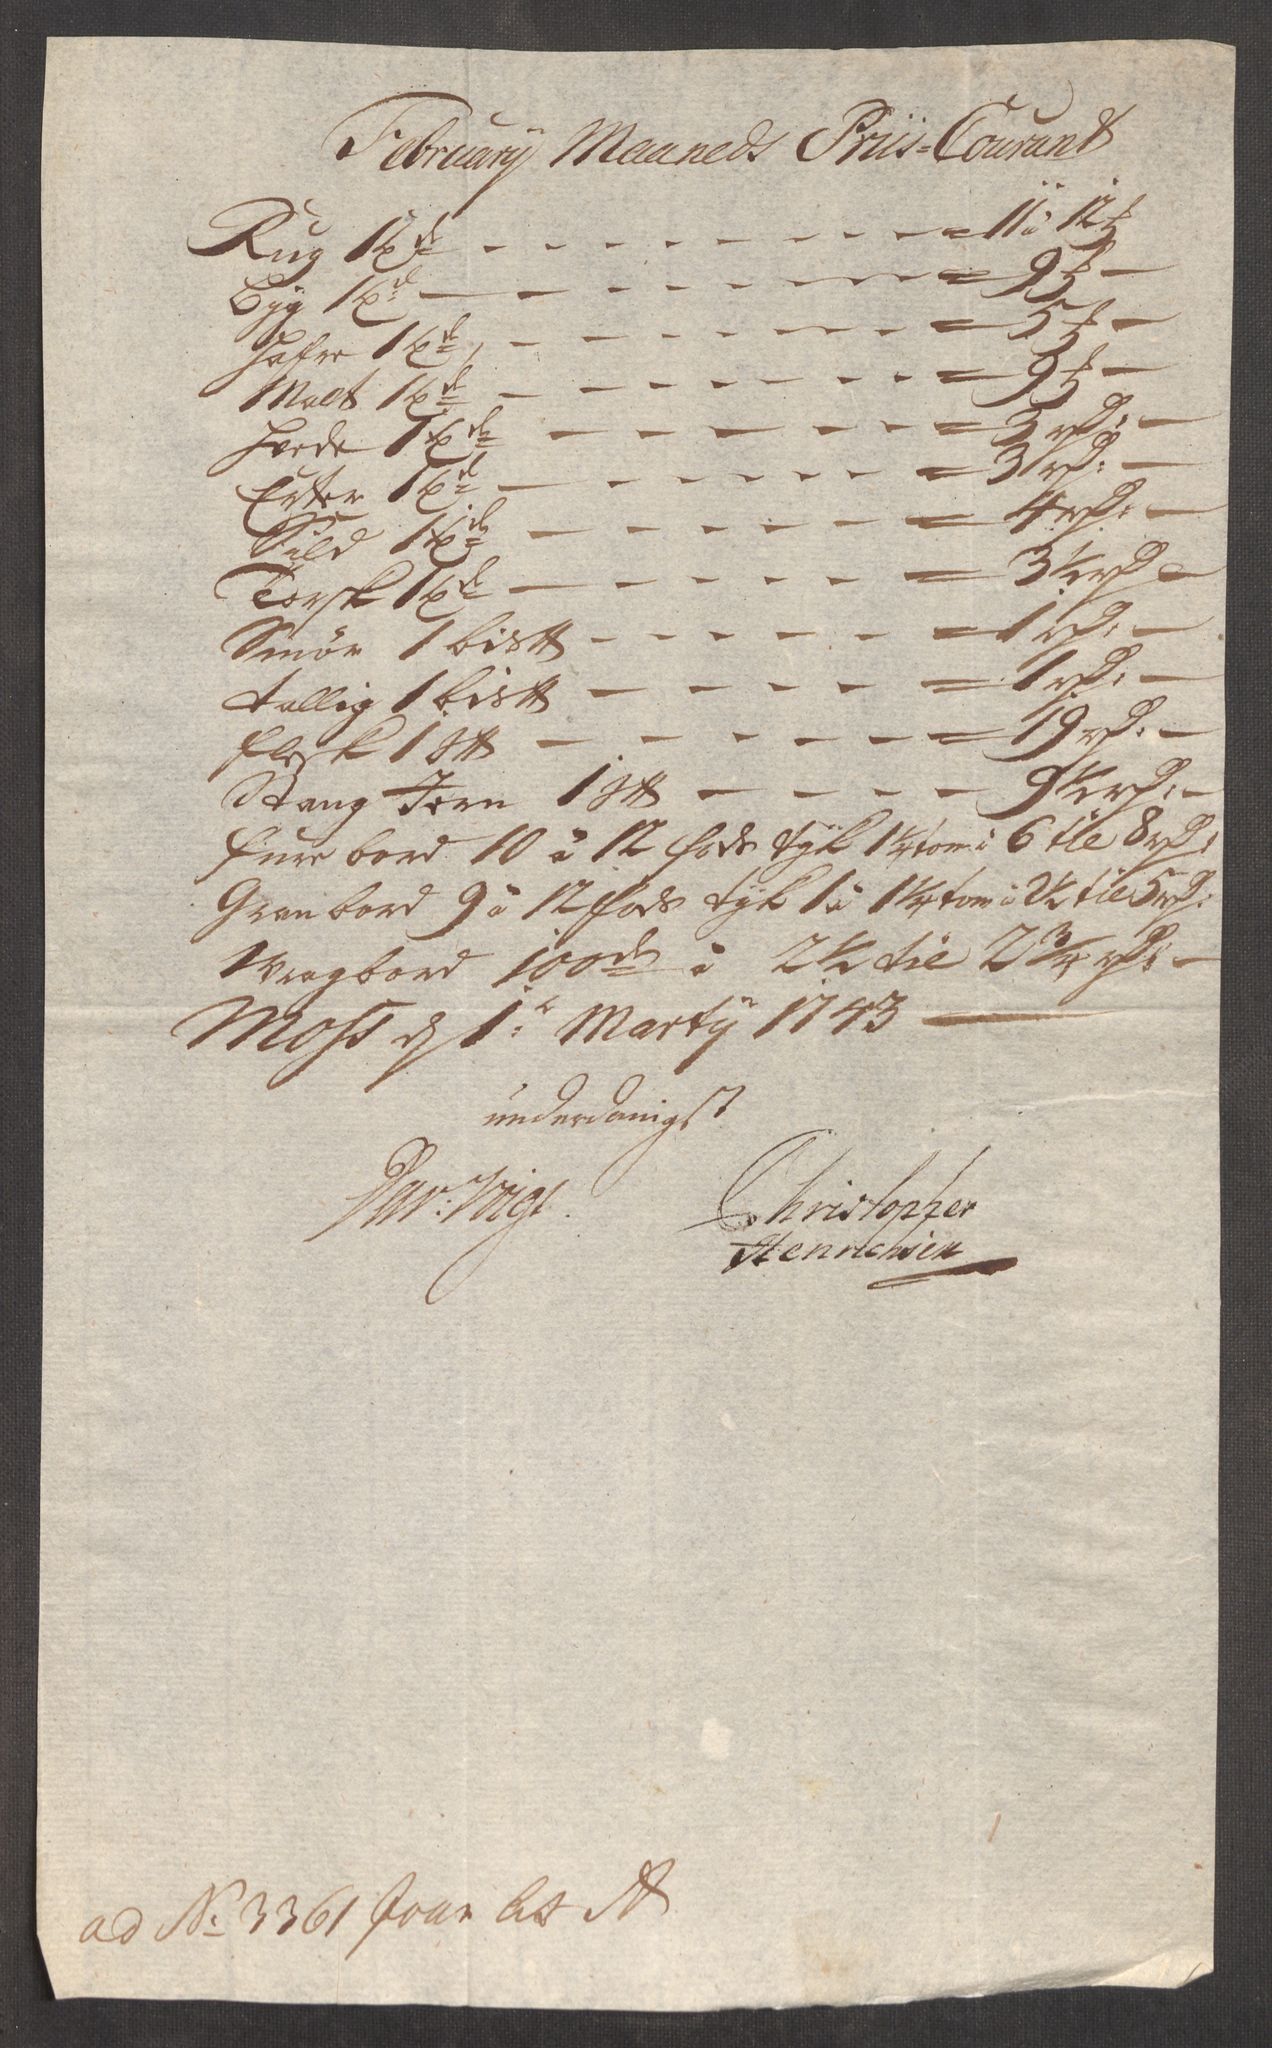 Februarÿ Maaneds Priis-Courant
Rug 1 tde - - - - - - - - = 11 à 12 ß
Byg 1 td - - - - - - - - = 9 ß -
Hafre 1 tde - - - - - - - = 5 ß -
Malt 1 tde - - - - - - - = 9 ß -
Hvede 1 tde - - - - - - = 3 rd: -
Erter 1 td - - - - - - - = 3 rd: -
Sild 1 tde - - - - - - = 4 rd: -
Torsk 1 tde - - - - - - = 3 ½ rd -
Smør 1 bis℔ - - - - - - = 1 rd: -
tallig 1 bis℔ - - - - - = 1 rd: -
flesk 1 s℔ - - - - - - = 19 rd: -
Stang Jern 1 s℔ - - - - 9 ½ rd: -
furre bord 10 à 12 fods tyk 1 ¼ tom à 6 til 8 rd:
Gran bord 9 à 12 fods tyk 1 à 1 ¼ tom à 2 ½ til 5 rd:
Vragbord 100de à 2 ½ til 2 ¾ rd: -
Moss d 1: Martÿ 1743
underdanigst
Pav: Voigt. Christopher
Henrichsen
ad No 3361 Jour Lit A